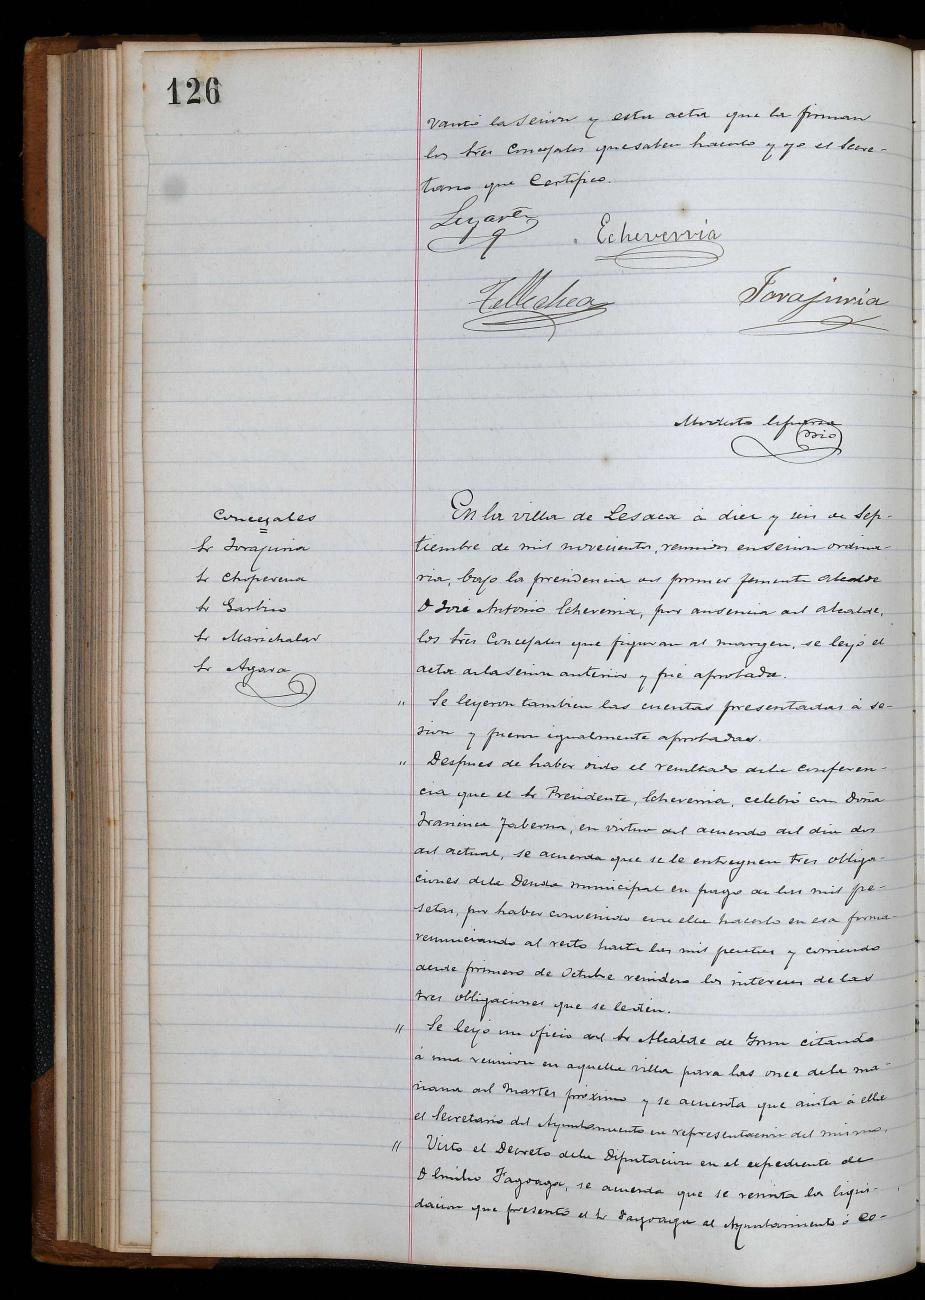 126
vantó la sesion y esta acta que la firman
los tres Concejales que saben hacerlo y yo el Secre-
tario que Certifico.
Echeverria
Tellechea
Torajuria
Modesto
Srio
Concejales
Sr Torajuria
Sr Choperena
Sr
Sr Marichalar
Sr Agara
En la villa de Lesaca á diez y seis de Sep-
tiembre de mil novecientos, reunidos en sesion ordina-
ria, bajo la presidencia del primer Teniente Alcalde
D José Antonio Echeverria, por ausencia del Alcalde,
los tres Concejales que figuran al margen, se leyó el
acta de la sesion anterior y fue aprobada.
" Se leyeron tambien las cuentas presentadas á se-
sion y fueron igualmente aprobadas.
" Despues de haber oido el resultado de la conferen-
cia que el Sr Presidente, Echeverria, celebró con Doña
Francisca Taberna, en virtud del acuerdo del dia dos
del actual, se acuerda que se le entreguen tres obliga-
ciones de la Deuda municipal en pago de las mil pe-
setas, por haber convenido con ella hacerlo en esa forma
renunciando al resto hasta las mil pesetas y corriendo
desde primero de Octubre venidero los intereses de las
tres obligaciones que se
" Se leyó un oficio del Sr Alcalde de Irun citando
á una reunion en aquella villa para las once de la ma-
ñana del Martes próximo y se acuerda que asista á ella
el Secretario del Ayuntamiento en representacion del mismo.
" Visto el Decreto de la Diputacion en el expediente de
D Emilio Fagoaga, se acuerda que se remita la liqui-
dacion que presentó el Sr Fagoaga al Ayuntamiento ó co-